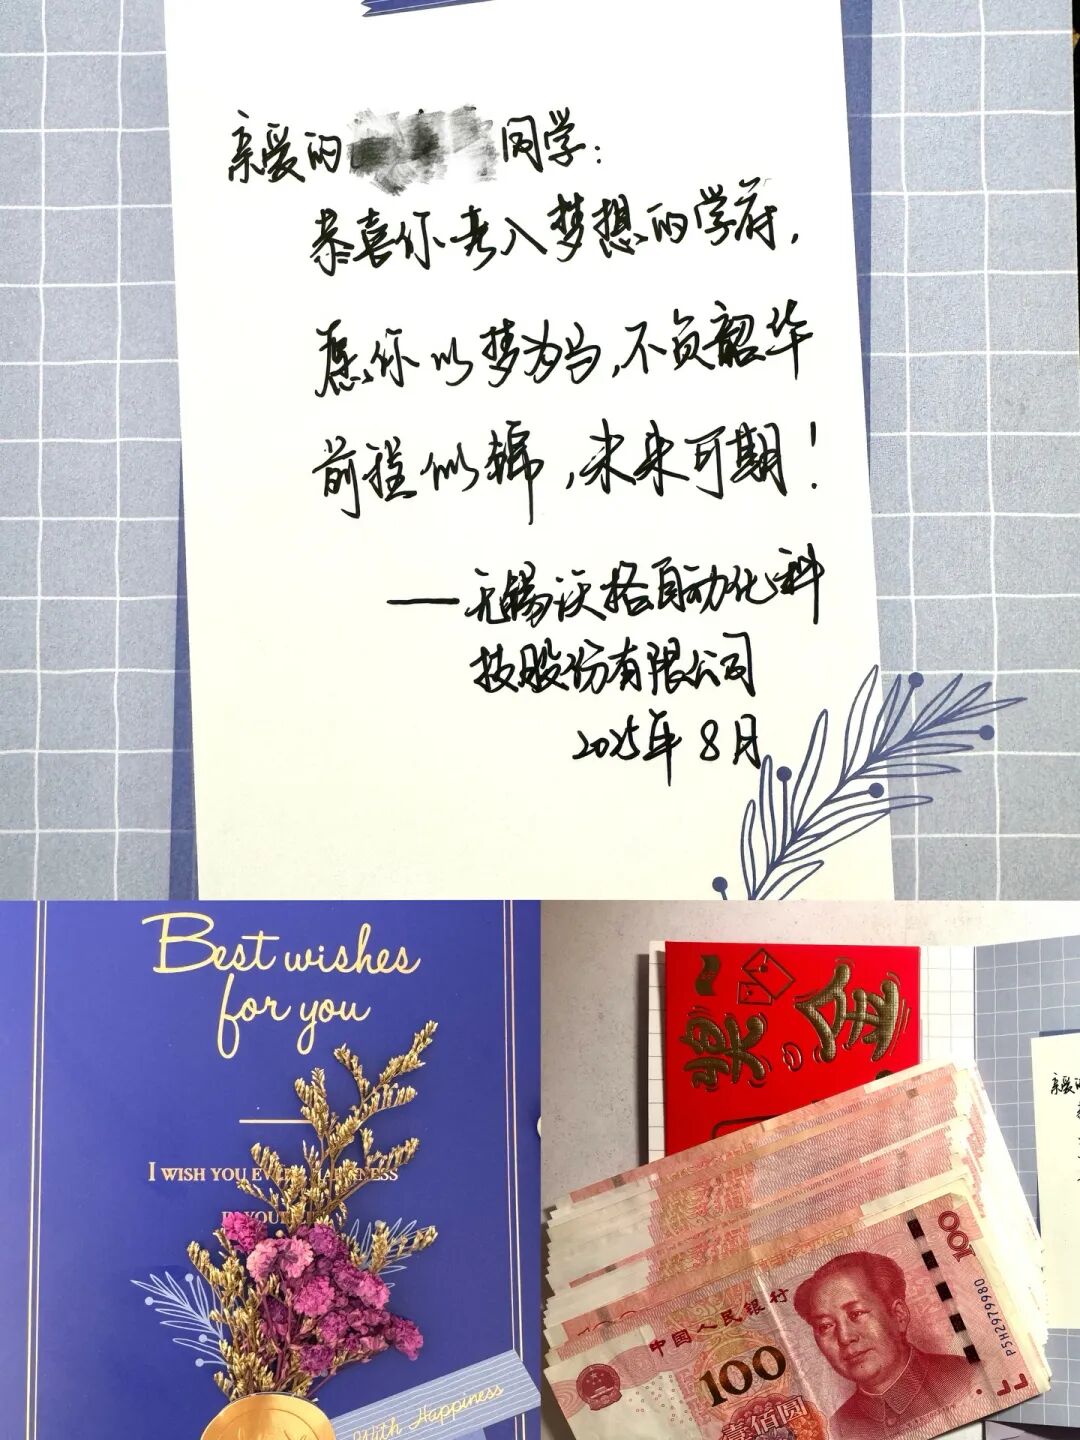 亲爱的 同学:
恭喜你考入梦想的学府,
愿你以梦为马,不负韶华
前程似锦,未来可期!
——无锡沃格自动化科
技股份有限公司
2025年8月
Best wishes
for you
I WISH YOU EVERY HAPPINESS
With Happiness
奖金
亲爱的
中国人民银行
100
壹佰圆
100
P5H2979980